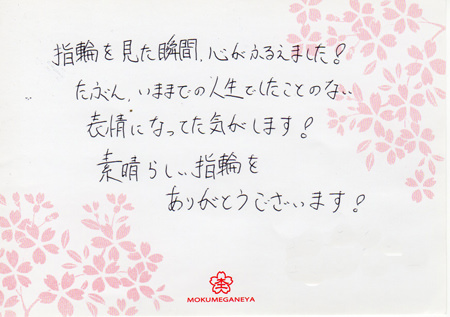 指輪を見た瞬間、心がふるえました!
たぶん、いままでの人生でしたことのない
表情になってた気がします!
素晴らしい指輪を
ありがとうございます!
MOKUMEGANEYA